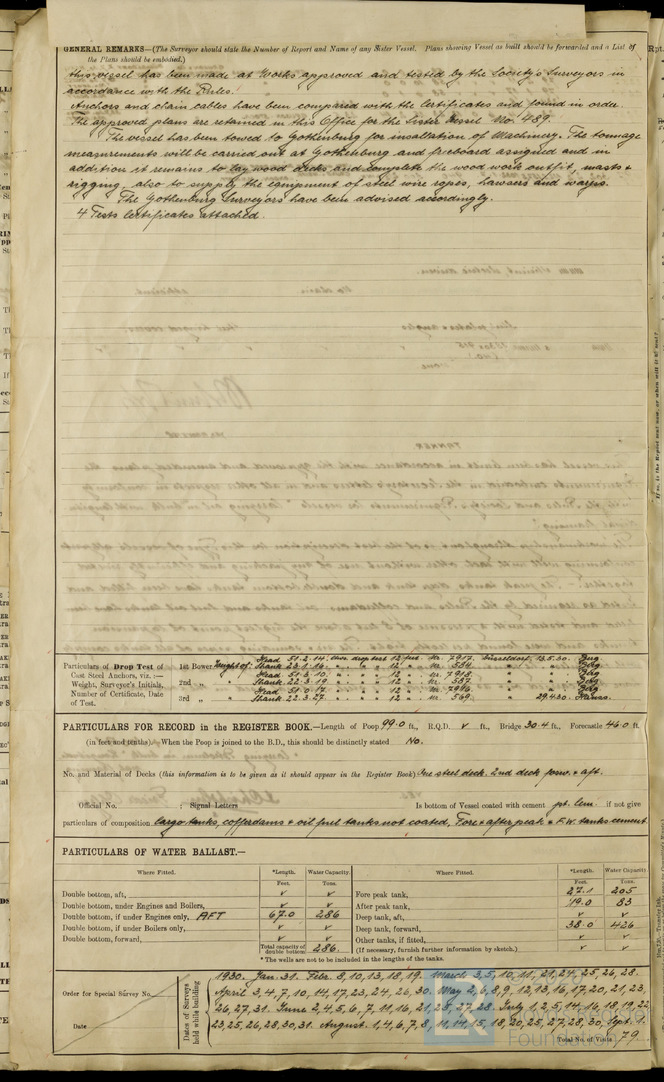 GENERAL REMARKS—(The Surveyor should state the Number of Report and Name of any Sister Vessel. Plans showing Vessel as built should be forwarded and a List of
the Plans should be embodied.)
this vessel has been made at Works approved and tested by the Society's Surveyors in
accordance with the Rules.
Anchors and chain cables have been compared with the Certificates and found in order.
The approved plans are retained in this Office for the Sister Vessel No. 489.
The vessel has been towed to Gothenburg for insallation of Machinery. The tonnage
measurements will be carried out at Gothenburg and freeboard assigned and in
addition it remains to lay wood decks and complete the wood work outfit, masts &
rigging, also to supply the equipment of steel wire ropes, hawsers and warps.
The Gothenburg Surveyors have been advised accordingly.
4 Tests Certificates attached.
Particulars of Drop Test of
Cast Steel Anchors, viz.:—
Weight, Surveyor's Initials,
Number of Certificate, Date
of Test.
1st Bower Weight of: Head 51.2.14. 12 feet Nr. 7917. Düsseldorf 13.5.30.
Shank 23.1.16. " " " 12 " Nr. 584 "
2nd " " Head 51.3.10. " " " 12 " Nr. 7918 "
Shank 22.3.19. " " " 12 " Nr. 587 "
3rd " " Head 51.0.17. " " " 12 " Nr. 7916 "
Shank 22.3.27. " " " 12 " Nr. 569. " 29.4.30.
PARTICULARS FOR RECORD in the REGISTER BOOK.—Length of Poop 99.0 ft., R.Q.D. ✓ ft., Bridge 30.4 ft., Forecastle 46.0 ft.
(in feet and tenths).—When the Poop is joined to the B.D., this should be distinctly stated No.
No. and Material of Decks (this information is to be given as it should appear in the Register Book) One steel deck. 2nd deck forw. & aft.
Official No. ; Signal Letters Is bottom of Vessel coated with cement pt. Cem. if not give
particulars of composition Cargo tanks, cofferdams & oil fuel tanks not coated, Fore & after peak & F.W. tanks cement
PARTICULARS OF WATER BALLAST.—
Where Fitted. *Length. Water Capacity. Where Fitted. *Length. Water Capacity.
Feet. Tons. Feet. Tons.
Double bottom, aft, ✓ ✓ Fore peak tank, 27.1 205
Double bottom, under Engines and Boilers, ✓ ✓ After peak tank, 19.0 83
Double bottom, if under Engines only, AFT 67.0 286 Deep tank, aft, ✓ ✓
Double bottom, if under Boilers only, ✓ ✓ Deep tank, forward, 38.0 426
Double bottom, forward, ✓ ✓ Other tanks, if fitted, ✓ ✓
Total capacity of double bottom 286. (If necessary, furnish further information by sketch.) ✓ ✓
* The wells are not to be included in the lengths of the tanks.
Order for Special Survey No.
Date
Dates of Surveys held while building
1930. Jan. 31. Febr. 8, 10, 13, 18, 19. March 3, 5, 10, 11, 21, 24, 25, 26, 28.
April 3, 4, 7, 10, 14, 17, 23, 24, 26, 30. May 2, 6, 8, 9, 12, 13, 16, 17, 20, 21, 23,
26, 27, 31. June 2, 4, 5, 6, 7, 11, 16, 21, 23, 27, 28. July 1, 2, 5, 14, 16, 18, 19, 22
23, 25, 26, 28, 30, 31. August. 1, 4, 6, 7, 8, 11, 14, 15, 18, 20, 25, 27, 28, 30, Sept. 1.
Total No. of Visits 79
Foundation